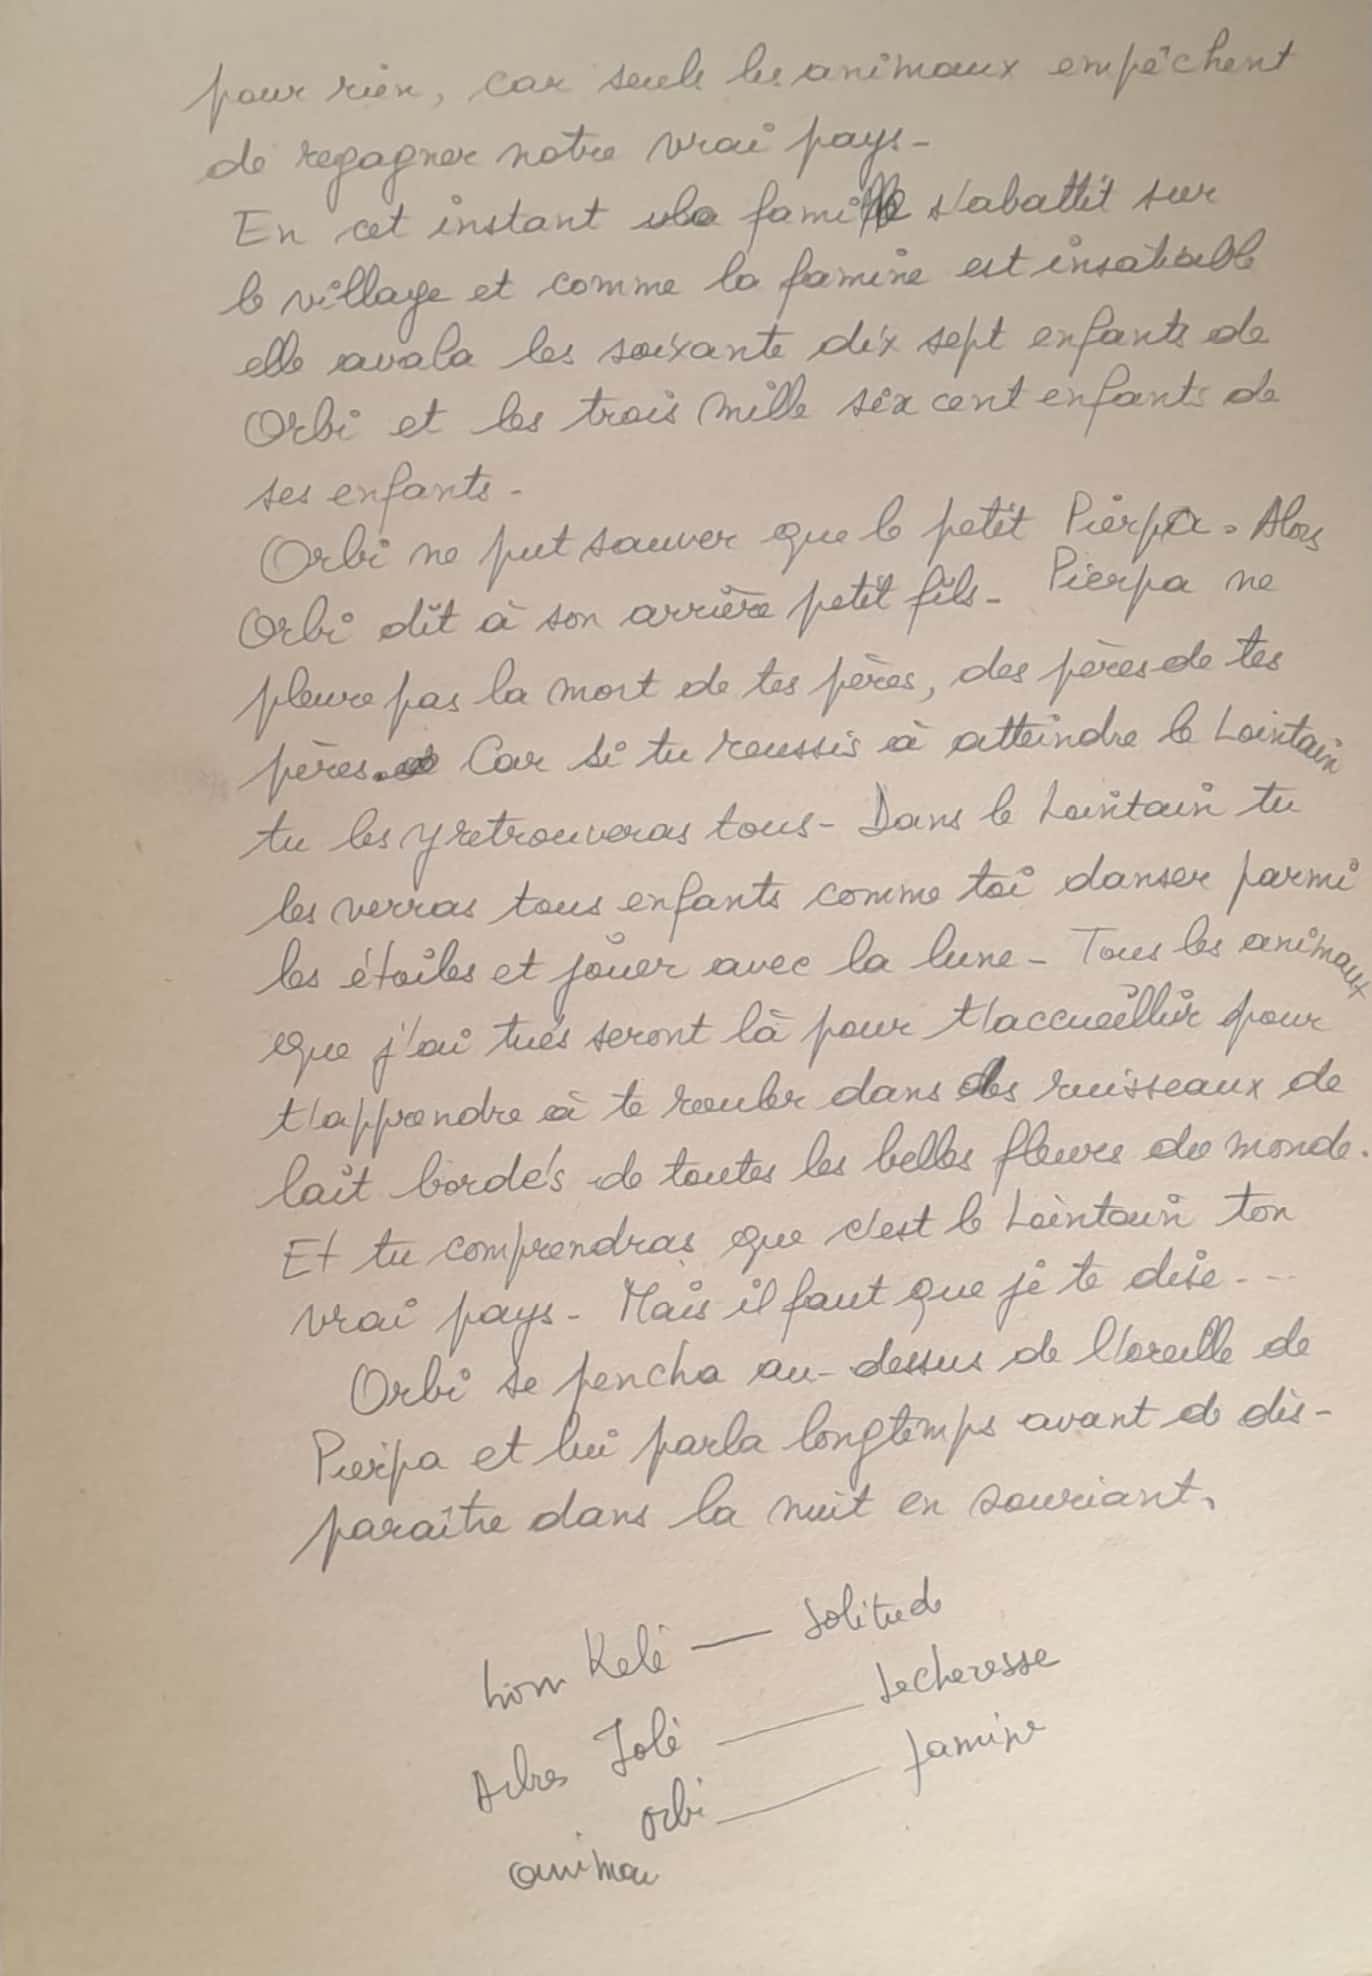 pour rien, car seuls les animaux empêchent
de regagner notre vrai pays -
En cet instant la famine s'abattit sur
le village et comme la famine est insatiable
elle avala les soixante dix sept enfants de
Orbi et les trois mille six cent enfants de
ses enfants -
Orbi ne put sauver que le petit Pierpa. Alors
Orbi dit à son arrière petit fils - Pierpa ne
pleure pas la mort de tes pères, des pères de tes
pères. Car si tu reussis à atteindre le Lointain
tu les y retrouveras tous - Dans le Lointain tu
les verras tous enfants comme toi danser parmi
les étoiles et jouer avec la lune - Tous les animaux
que j'ai tués seront là pour t'accueillir pour
t'apprendre à te rouler dans des ruisseaux de
lait bordés de toutes les belles fleurs du monde.
Et tu comprendras que c'est le Lointain ton
vrai pays - Mais il faut que je te dise - - -
Orbi se pencha au-dessus de l'oreille de
Pierpa et lui parla longtemps avant de dis-
paraître dans la nuit en souriant.
Kelé — Solitude
Arbres Jolé — Secheresse
Orbi — famine
animau